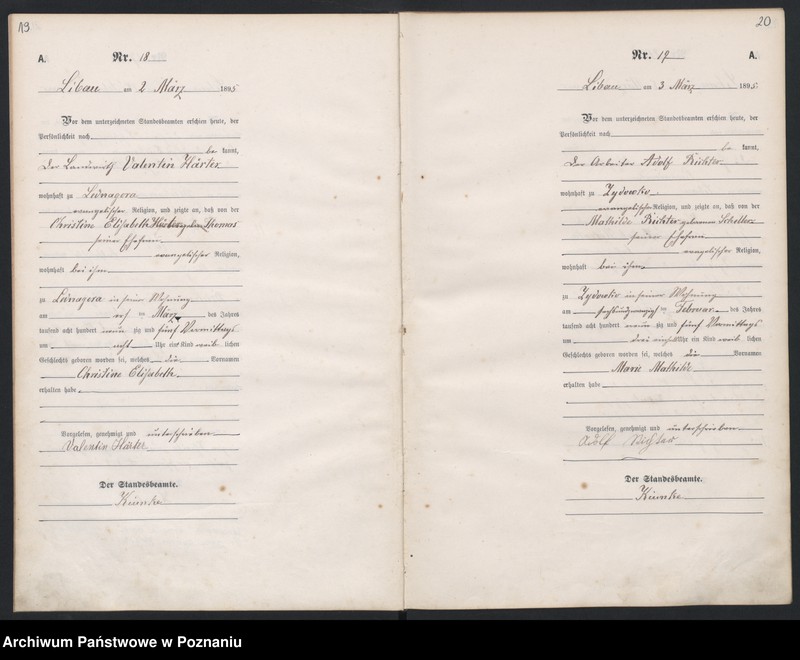 19
A.
Nr. 18
Libau am 2 März 1895
Vor dem unterzeichneten Standesbeamten erschien heute, der
Persönlichkeit nach
be kannt,
der Landwirth Valentin Härter
wohnhaft zu Lednagora
evangelischer Religion, und zeigte an, daß von der
Christine Elisabeth Härter geboren Thomas
seiner Ehefrau
evangelischer Religion,
wohnhaft bei ihm
zu Lednagora in seiner Wohnung
am März des Jahres
tausend acht hundert neun zig und fünf Vormittags
um acht Uhr ein Kind weib lichen
Geschlechts geboren worden sei, welches die Vornamen
Christine Elisabeth
erhalten habe
Vorgelesen, genehmigt und unterschrieben
Valentin Härter
Der Standesbeamte.
20
Nr. 19
A.
Libau am 3 März 1895
Vor dem unterzeichneten Standesbeamten erschien heute, der
Persönlichkeit nach
be kannt,
der Arbeiter Adolf Richter
wohnhaft zu Zydowko
evangelischer Religion, und zeigte an, daß von der
Mathilde Richter geborenen
seiner Ehefrau
evangelischer Religion,
wohnhaft bei ihm
zu Zydowko in seiner Wohnung
am Februar des Jahres
tausend acht hundert neun zig und fünf Vormittags
um drei einhalb Uhr ein Kind weib lichen
Geschlechts geboren worden sei, welches die Vornamen
Marie Mathilde
erhalten habe
Vorgelesen, genehmigt und unterschrieben
Adolf Richter
Der Standesbeamte.
Archiwum Państwowe w Poznaniu